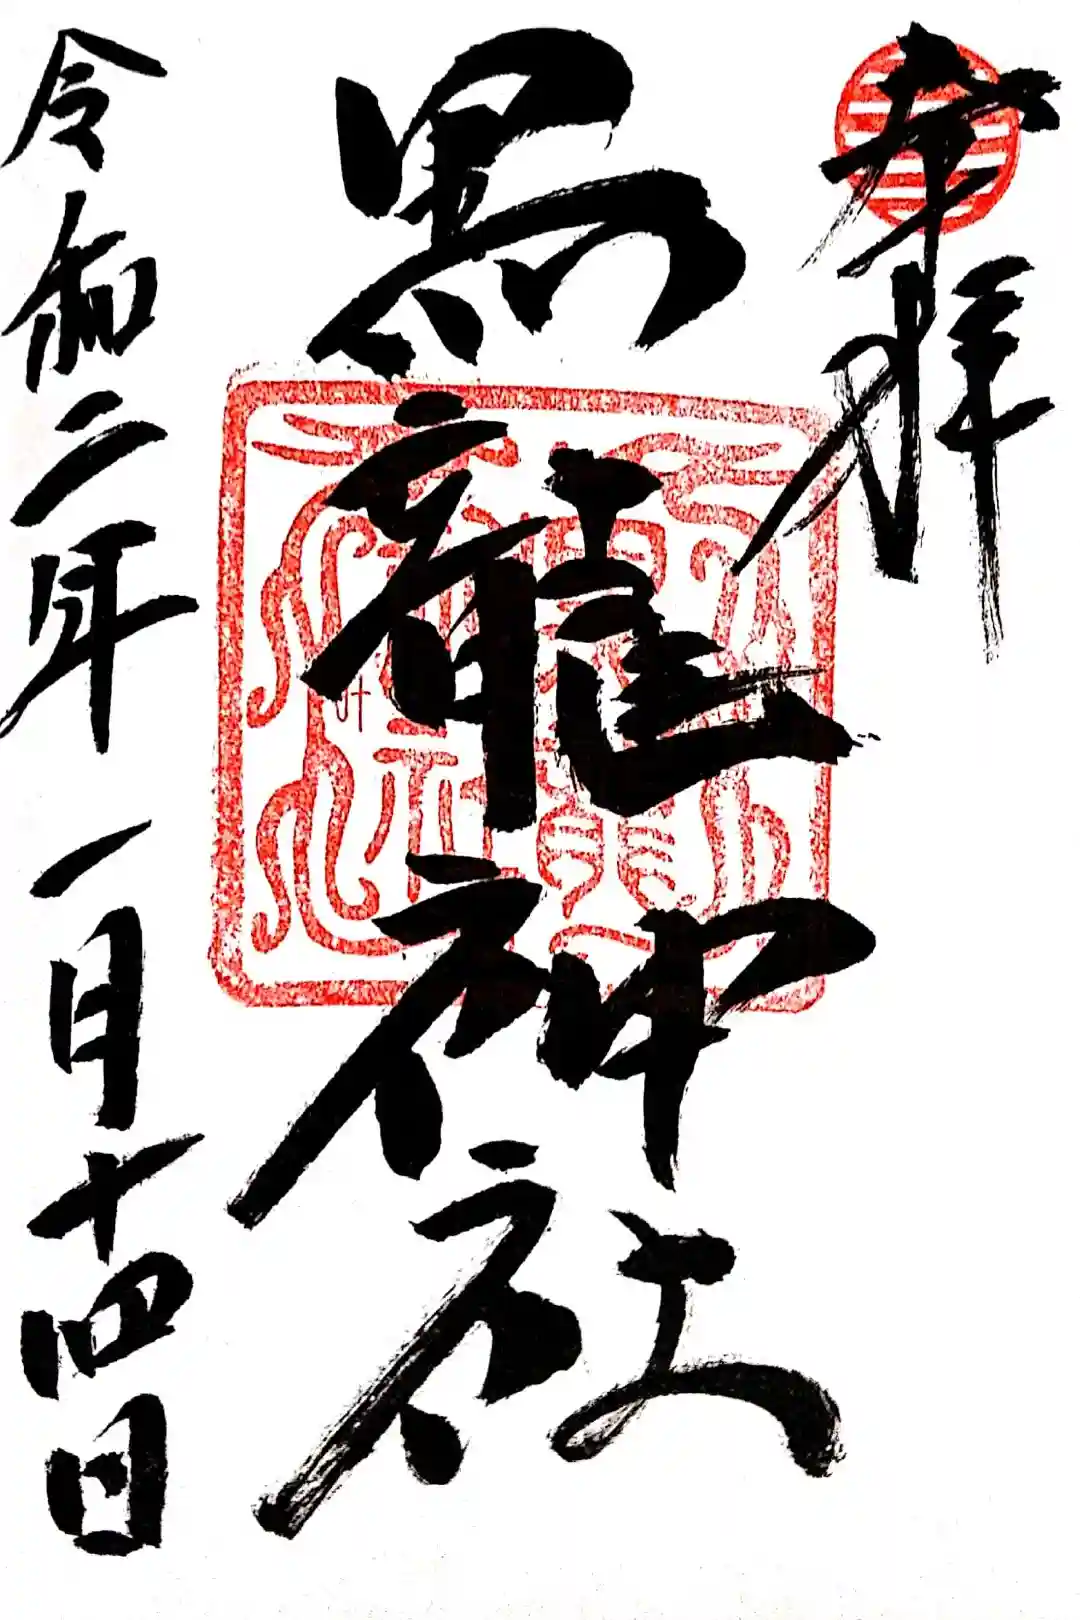 奉拝
黒龍神社
令和二年一月十四日